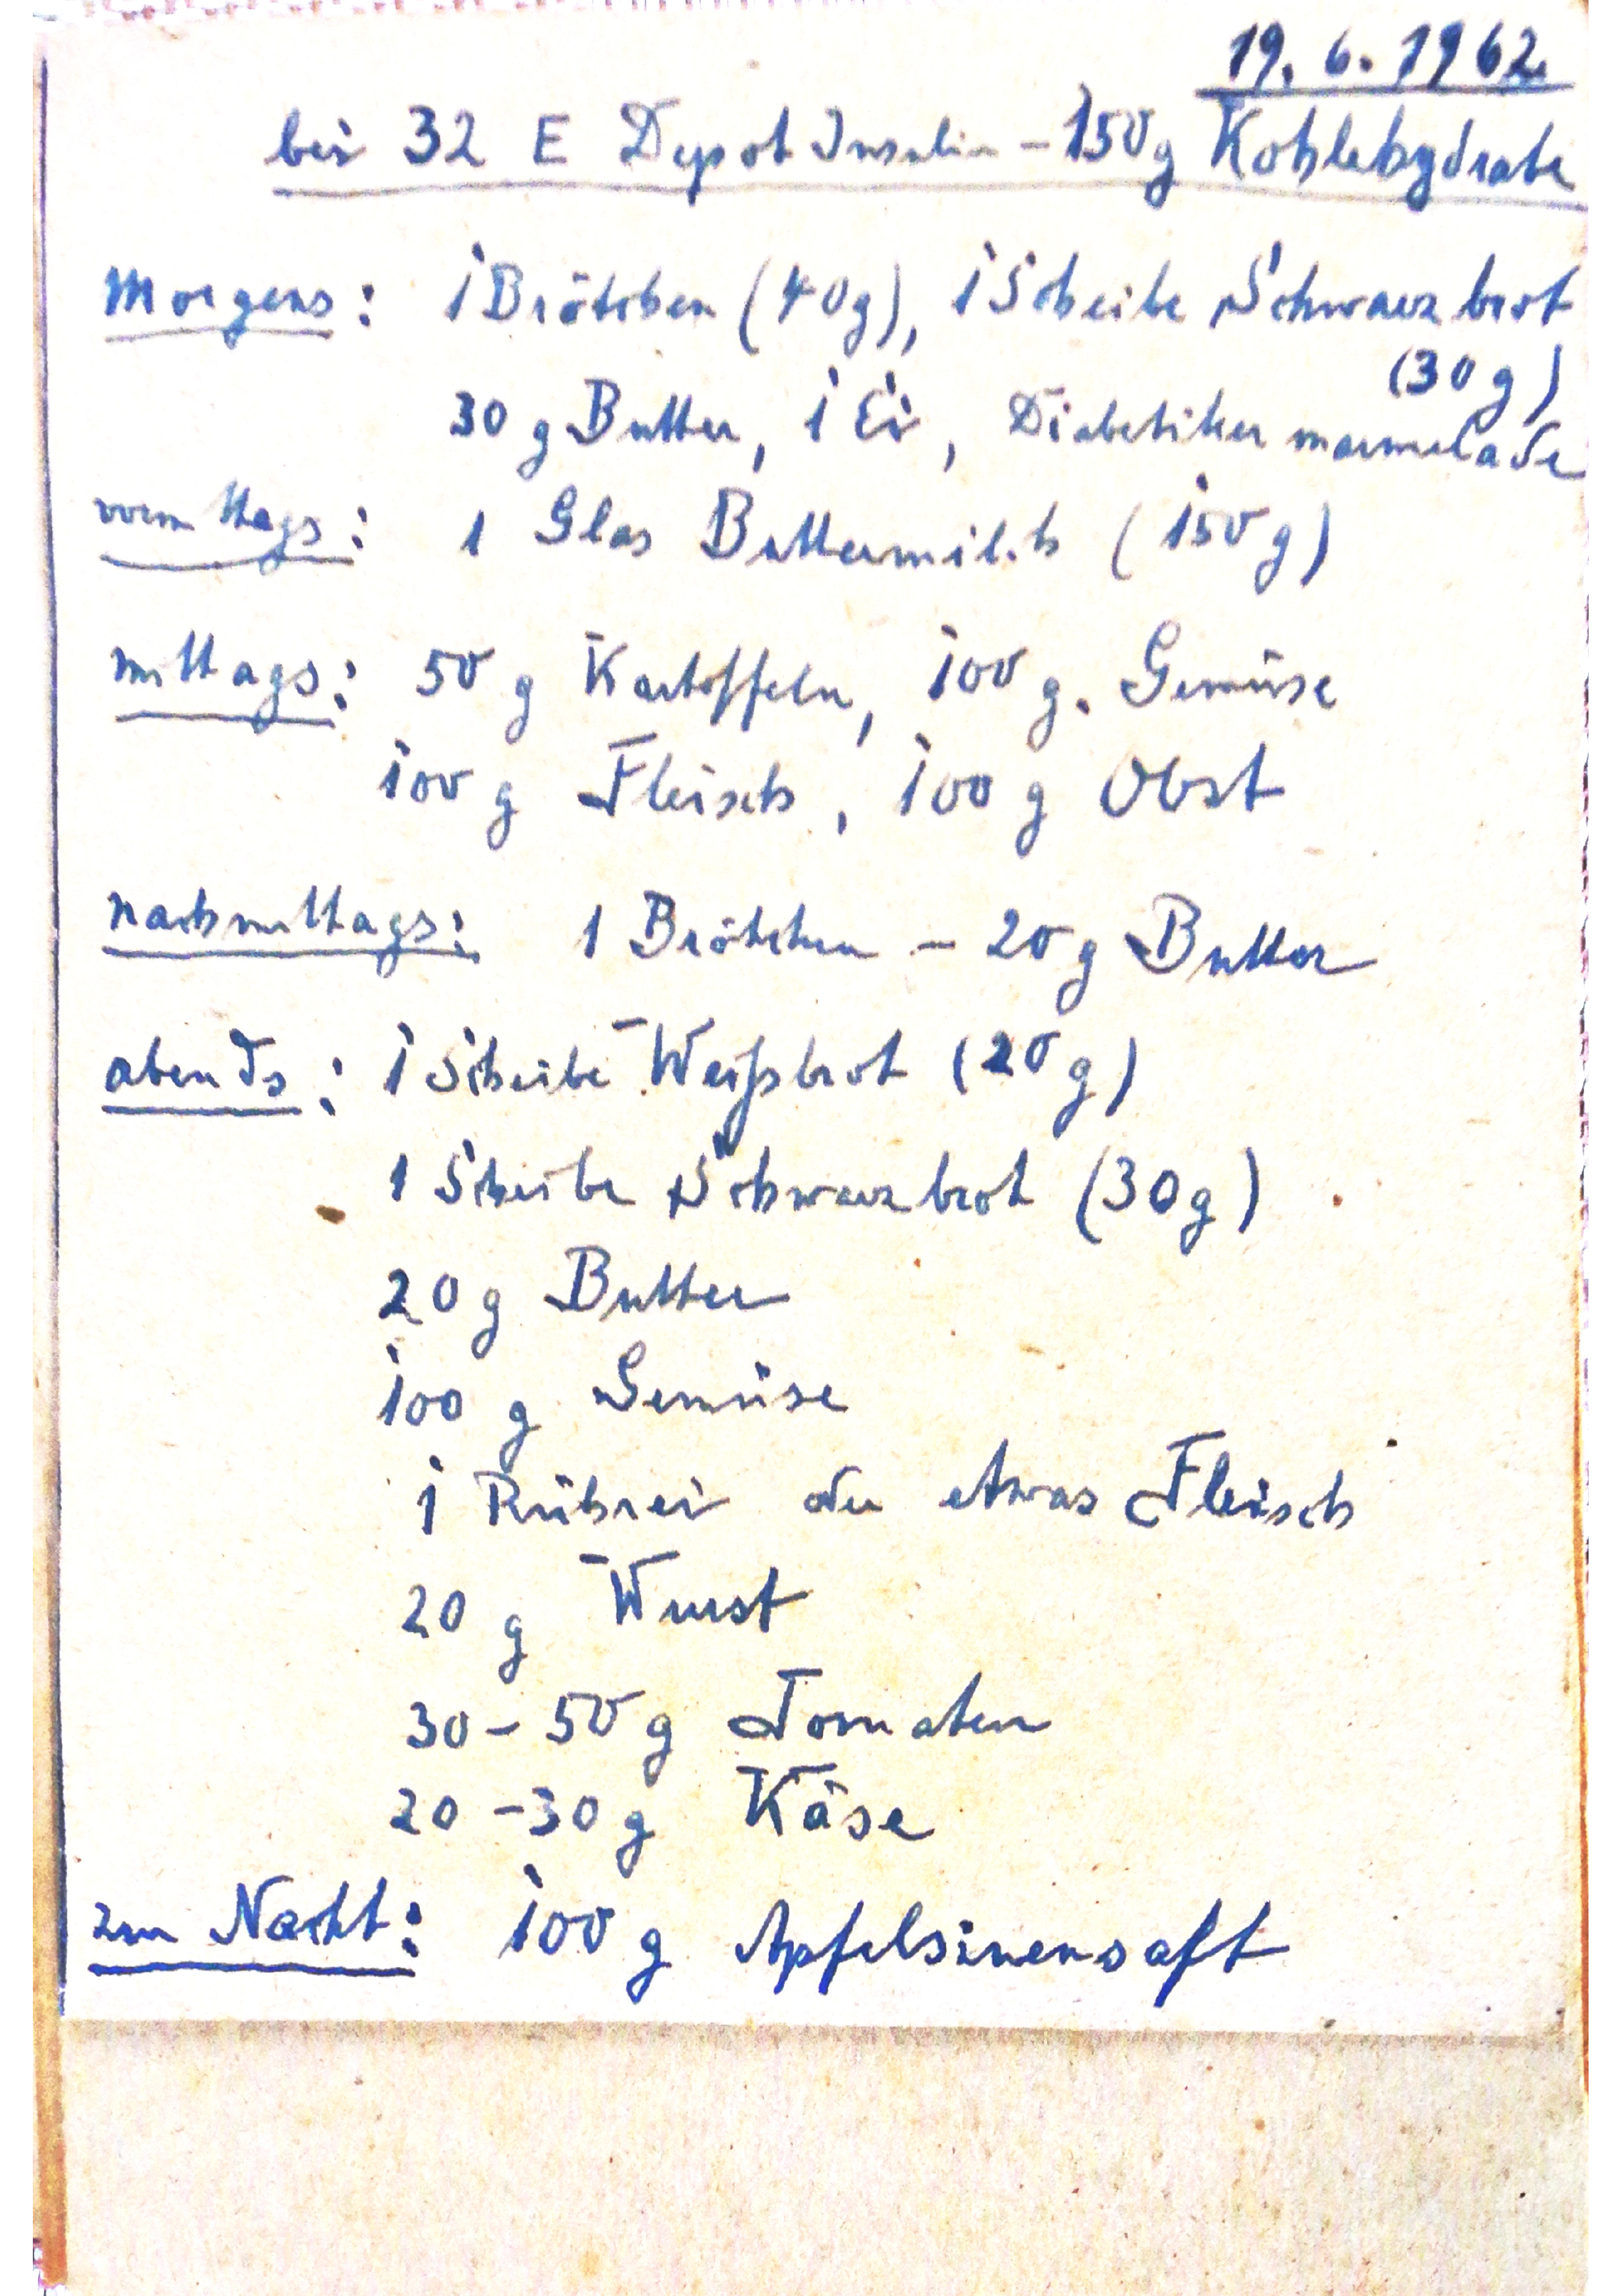 19. 6. 1962
bei 32 E Depot Insulin – 150g Kohlehydrate
Morgens: 1 Brötchen (40g), 1 Scheibe Schwarzbrot
(30g)
30 g Butter, 1 Ei, Diabetiker marmelade
vormittags: 1 Glas Buttermilch (150g)
mittags: 50 g Kartoffeln, 100 g. Gemüse
100 g Fleisch, 100 g Obst
nachmittags: 1 Brötchen – 20 g Butter
abends: 1 Scheibe Weißbrot (20 g)
1 Scheibe Schwarzbrot (30g)
20 g Butter
100 g Gemüse
1 Rührei oder etwas Fleisch
20 g Wurst
30 – 50 g Tomaten
20 – 30 g Käse
zur Nacht: 100 g Apfelsinensaft